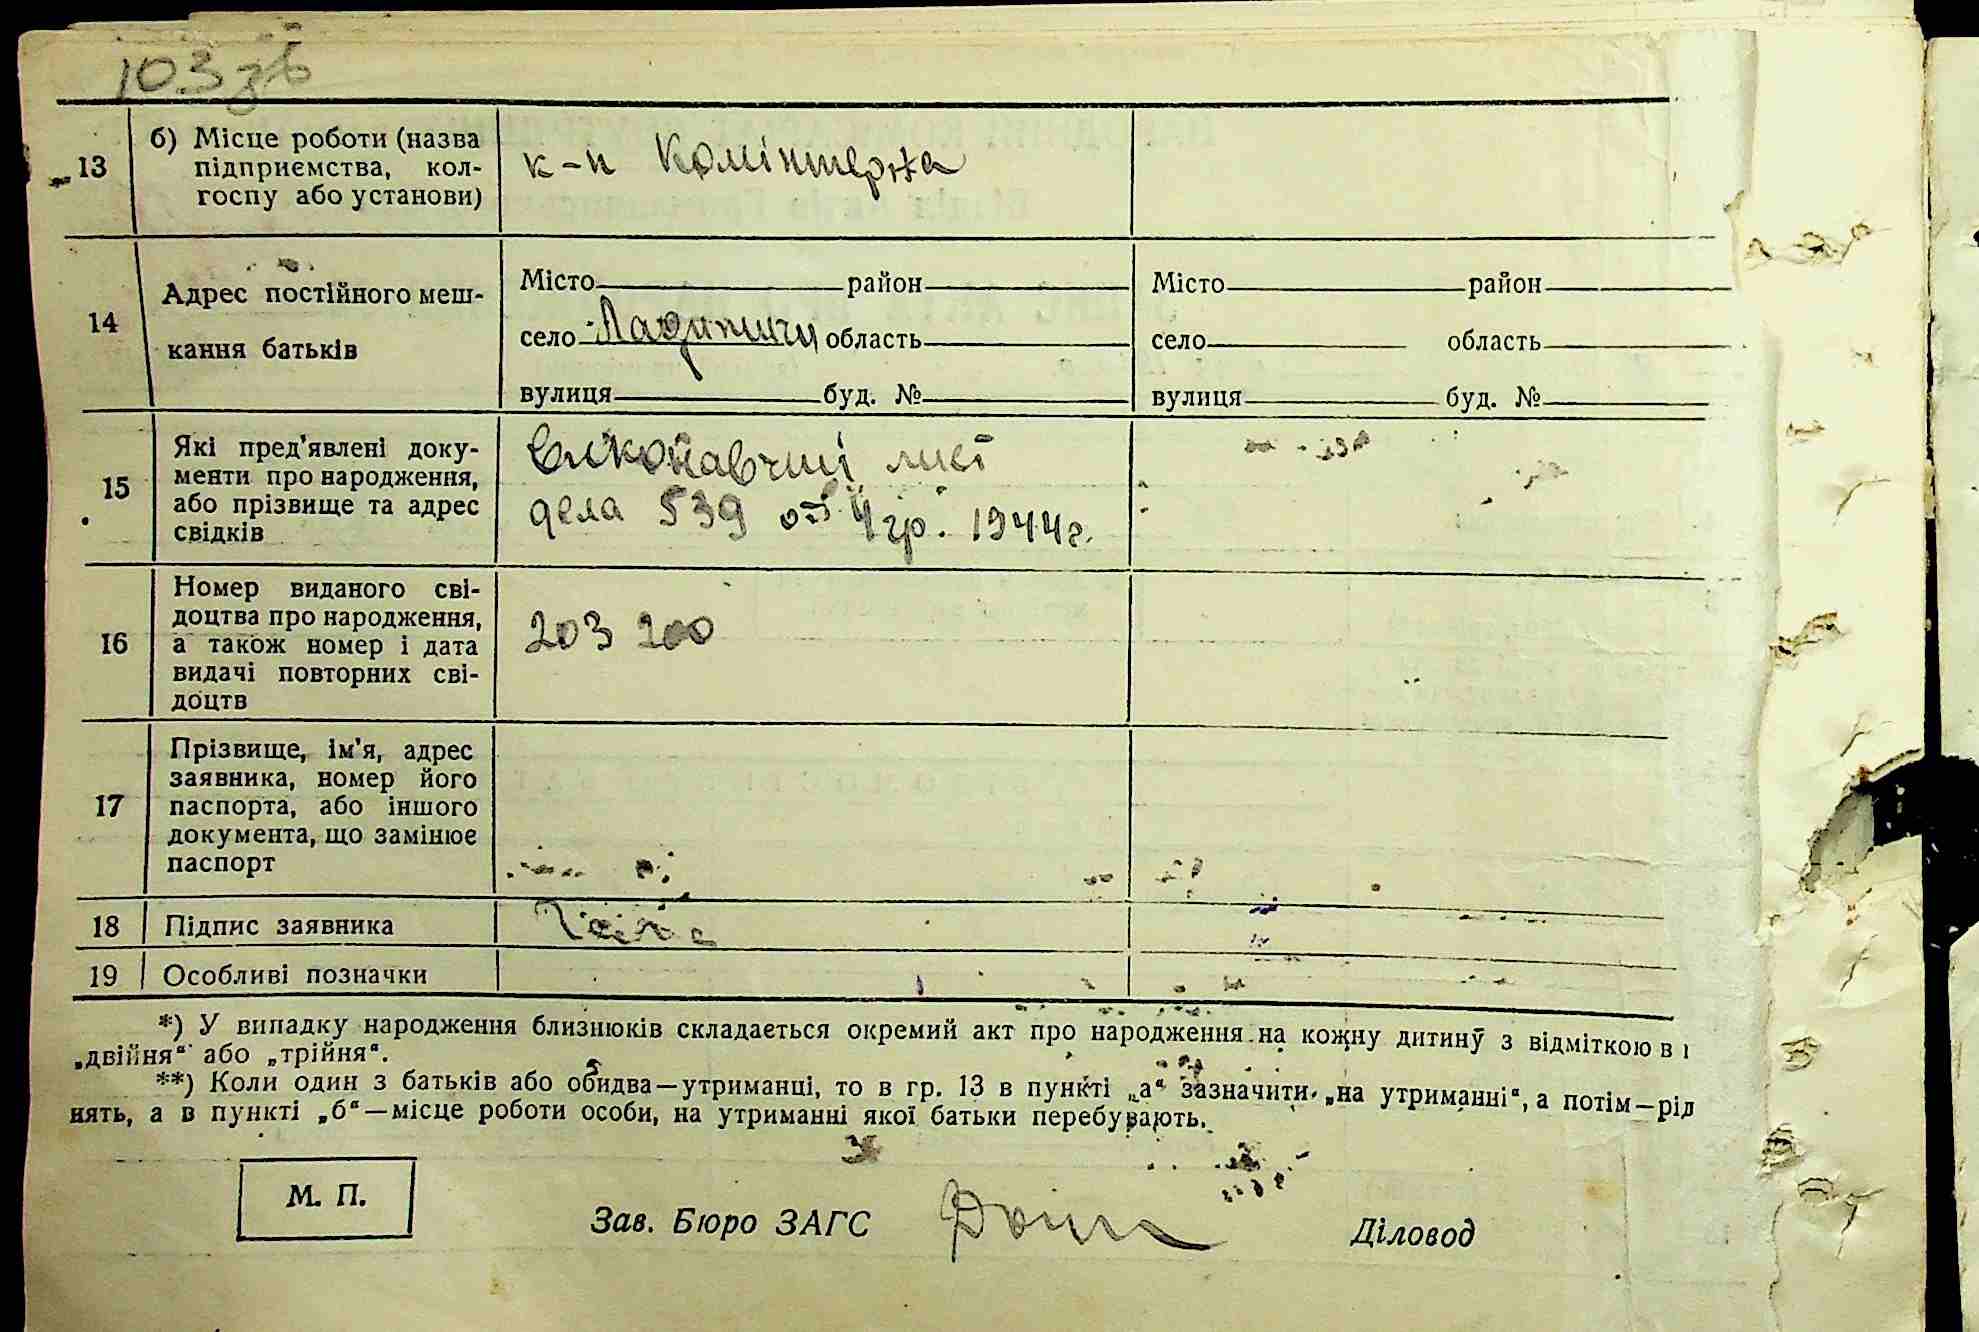 103 зв
13
б) Місце роботи (назва
підприємства, кол-
госпу або установи)
к-п Комінтерна
14
Адрес постійного меш-
кання батьків
Місто район
село Ладижичи область
вулиця буд. №
Місто район
село область
вулиця буд. №
15
Які пред'явлені доку-
менти про народження,
або прізвище та адрес
свідків
Виконавчий лист
дела 539 от 4 гр. 1944 г.
16
Номер виданого сві-
доцтва про народження,
а також номер і дата
видачі повторних сві-
доцтв
203 200
17
Прізвище, ім'я, адрес
заявника, номер його
паспорта, або іншого
документа, що замінює
паспорт
18 Підпис заявника
19 Особливі позначки
*) У випадку народження близнюків складається окремий акт про народження на кожну дитину з відміткою в
„двійня“ або „трійня“.
**) Коли один з батьків або обидва—утриманці, то в гр. 13 в пункті „а“ зазначити „на утриманні“, а потім—рід
нять, а в пункті „б“—місце роботи особи, на утриманні якої батьки перебувають.
М. П.
Зав. Бюро ЗАГС
Діловод